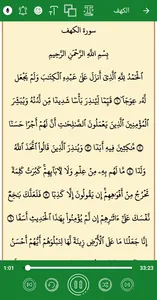 الكهف
سورة الكهف
بِسْمِ اللَّهِ الرَّحْمَٰنِ الرَّحِيمِ
الْحَمْدُ لِلَّهِ الَّذِي أَنزَلَ عَلَىٰ عَبْدِهِ الْكِتَابَ وَلَمْ يَجْعَل
لَّهُ عِوَجًا ۝١ قَيِّمًا لِّيُنذِرَ بَأْسًا شَدِيدًا مِّن لَّدُنْهُ وَيُبَشِّرَ
الْمُؤْمِنِينَ الَّذِينَ يَعْمَلُونَ الصَّالِحَاتِ أَنَّ لَهُمْ أَجْرًا حَسَنًا
۝٢ مَّاكِثِينَ فِيهِ أَبَدًا ۝٣ وَيُنذِرَ الَّذِينَ قَالُوا اتَّخَذَ اللَّهُ
وَلَدًا ۝٤ مَّا لَهُم بِهِ مِنْ عِلْمٍ وَلَا لِآبَائِهِمْ كَبُرَتْ كَلِمَةً
تَخْرُجُ مِنْ أَفْوَاهِهِمْ إِن يَقُولُونَ إِلَّا كَذِبًا ۝٥ فَلَعَلَّكَ بَاخِعٌ
نَّفْسَكَ عَلَىٰ آثَارِهِمْ إِن لَّمْ يُؤْمِنُوا بِهَٰذَا الْحَدِيثِ أَسَفًا ۝٦
إِنَّا جَعَلْنَا مَا عَلَى الْأَرْضِ زِينَةً لَّهَا لِنَبْلُوَهُمْ أَيُّهُمْ أَحْسَنُ
1:01 33:23